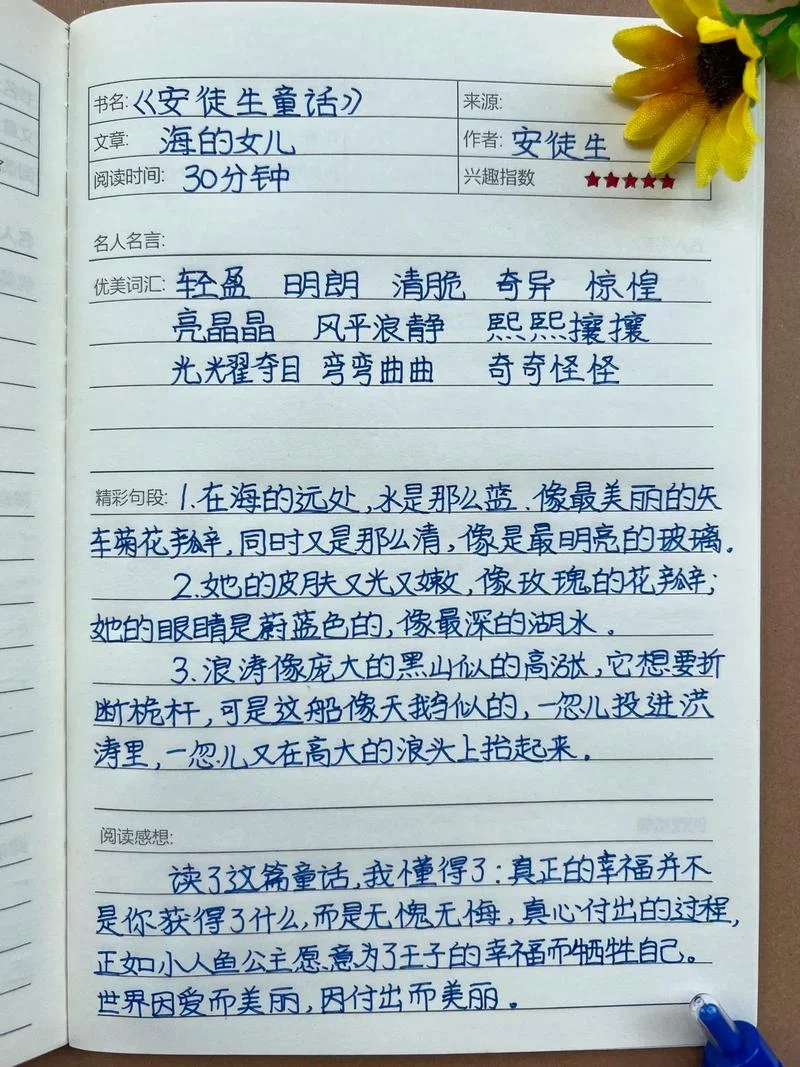 书名:《安徒生童话》 来源:
文章: 海的女儿 作者: 安徒生
阅读时间: 30分钟 兴趣指数 ★★★★★
名人名言:
优美词汇: 轻盈 明朗 清脆 奇异 惊惶
亮晶晶 风平浪静 熙熙攘攘
光光耀夺目 弯弯曲曲 奇奇怪怪
精彩句段: 1.在海的远处,水是那么蓝.像最美丽的矢
车菊花瓣,同时又是那么清,像是最明亮的玻璃。
2.她的皮肤又光又嫩,像玫瑰的花瓣;
她的眼睛是蔚蓝色的,像最深的湖水。
3.浪涛像庞大的黑山似的高涨,它想要折
断桅杆,可是这船像天鹅似的,一忽儿投进洪
涛里,一忽儿又在高大的浪头上抬起来。
阅读感想:
读了这篇童话,我懂得了:真正的幸福并不
是你获得了什么,而是无愧无悔,真心付出的过程,
正如小人鱼公主愿意为了王子的幸福而牺牲自己。
世界因爱而美丽,因付出而美丽。